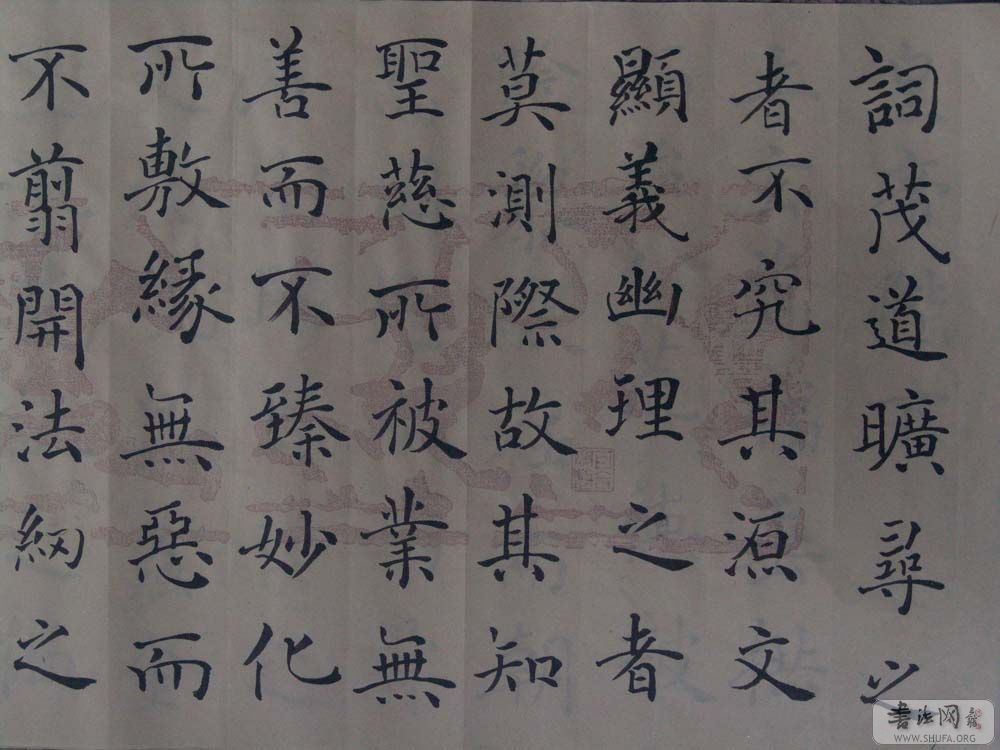 詞茂道曠尋之
者不究其源文
顯義幽理之者
莫測際故其知
聖慈所被業無
善而不臻妙化
所敷緣無惡而
不翦開法網之
書法网
WWW.SHUFA.ORG